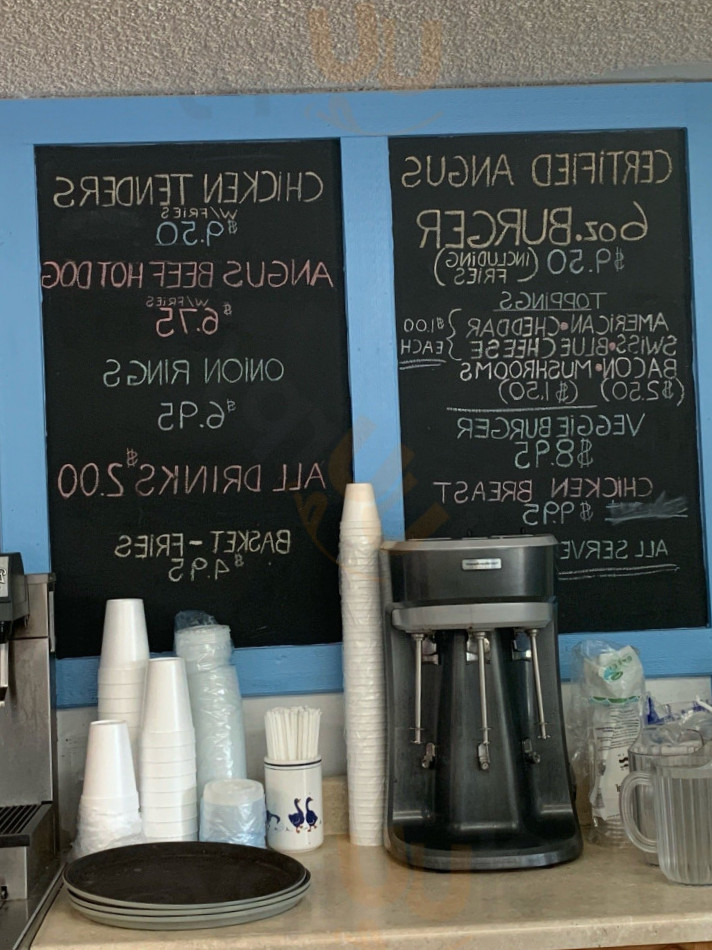 CHICKEN TENDERS
W/FRIES
$9.50
ANGUS BEEF HOT DOG
W/FRIES
$6.75
ONION RINGS
$6.95
ALL DRINKS $2.00
BASKET-FRIES
$4.95
CERTIFIED ANGUS
6oz. BURGER
$9.50 (INCLUDING FRIES)
TOPPINGS
AMERICAN•CHEDDAR } $1.00
SWISS•BLUE CHEESE } EACH
BACON•MUSHROOMS
($2.50) ($1.50)
VEGGIE BURGER
$8.95
CHICKEN BREAST
$9.95
ALL SERVE